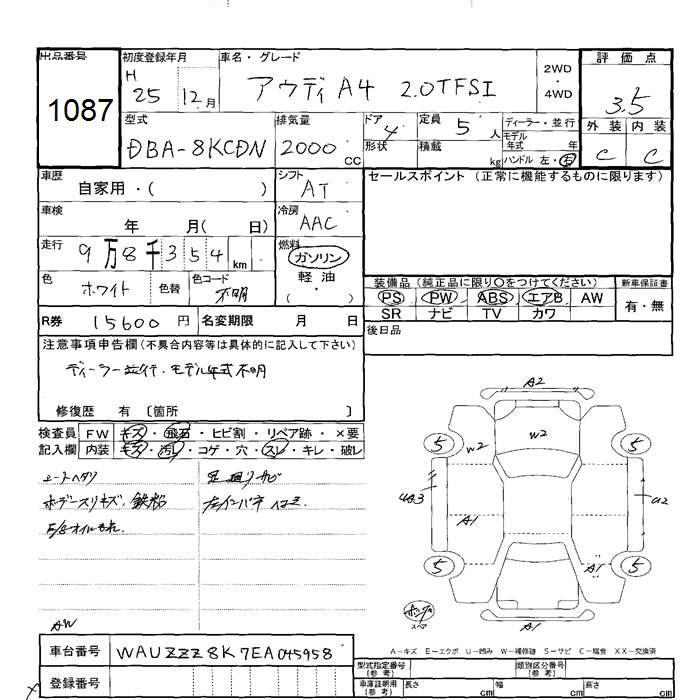 出品番号
1087
初度登録年月
H
25 12月
車名・グレード
アウディ A4 2.0TFSI
2WD
4WD
評価点
3.5
外装 内装
C C
型式
DBA-8KCDN
排気量
2000 CC
ドア 4
形状
定員 5 人
積載 kg
ディーラー・並行
モデル年式 年
ハンドル 左・右
車歴
自家用・( )
シフト
AT
セールスポイント (正常に機能するものに限ります)
車検
年 月( 日)
冷房
AAC
走行
9万8千354 km
燃料
ガソリン
軽油
( ・ )
色
ホワイト
色替
色コード
不明
装備品 (純正品に限り○をつけてください)
PS PW ABS エアB AW
SR ナビ TV カワ
新車保証書
有・無
R券 15600 円
名変期限 月 日
後日品
注意事項申告欄 (不具合内容等は具体的に記入して下さい)
ディーラー並行・モデル年式不明
修復歴 有 〔箇所 〕
検査員 FW キズ・飛石・ヒビ割・リペア跡・×要
記入欄 内装 キズ・汚レ・コゲ・穴・スレ・キレ・破レ
シートヘタリ
ボデースリキズ、鉄粉
E/Gオイルもれ
足廻りサビ
A2
5
W2
W2
5
A1
U2
5
A1
5
A1
AW
車台番号 WAUZZZ8K7EA045958
登録番号
A-キズ E-エクボ U-凹み W-補修跡 S-サビ C-腐食 XX-交換済
型式指定番号
(参考)
類別区分番号
(参考)
車庫証明用
(参考)
長さ cm 幅 cm 高さ cm